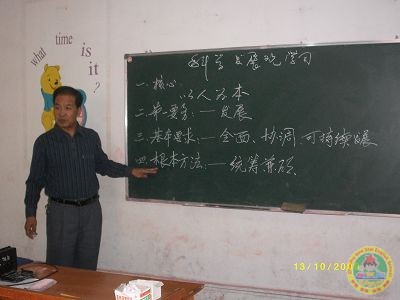 what time is it?
科学发展观学习
一、核心
以人为本
二、第一要务：—发展
三、基本要求：—全面、协调、可持续发展
四、根本方法：—统筹兼顾
13/10/200